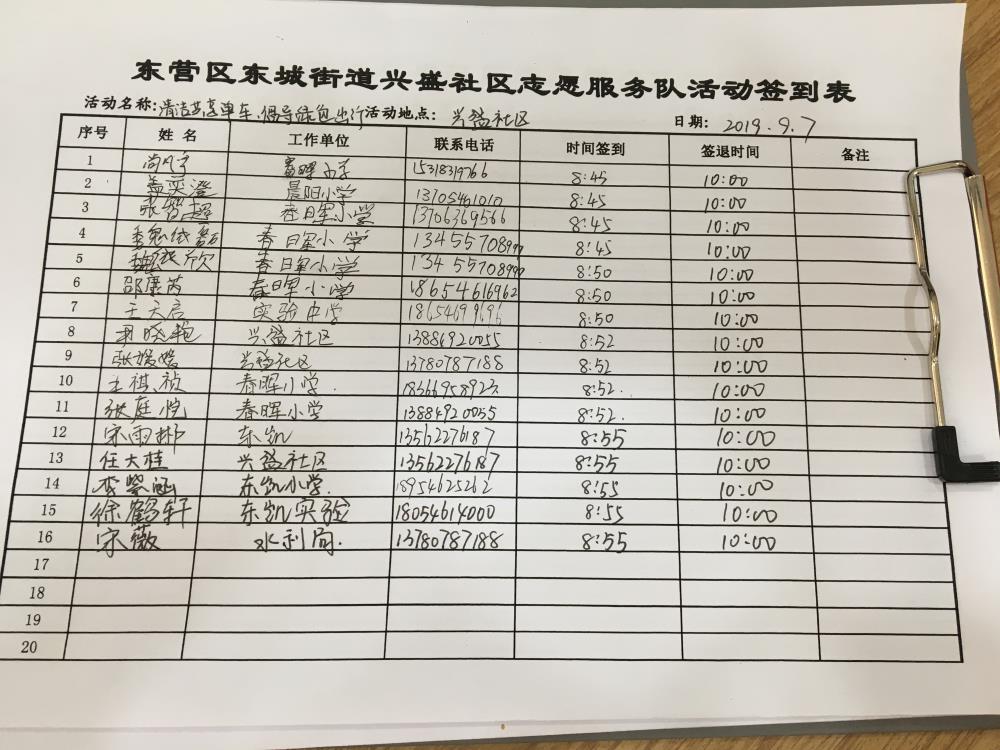 东营区东城街道兴盛社区志愿服务队活动签到表
活动名称:清洁共享单车,倡导绿色出行 活动地点: 兴盛社区 日期: 2019.9.7
序号 姓名 工作单位 联系电话 时间签到 签退时间 备注
1 春晖小学 15318319766 8:45 10:00
2 盖奕澄 晨阳小学 13705461010 8:45 10:00
3 张智超 春晖小学 13706369566 8:45 10:00
4 春晖小学 8:45 10:00
5 春晖小学 8:50 10:00
6 邵康芮 春晖小学 18654616962 8:50 10:00
7 王天启 实验中学 18654699696 8:50 10:00
8 尹晓艳 兴盛社区 13884920055 8:52 10:00
9 张媛媛 兴盛社区 13780787188 8:52 10:00
10 王祺祯 春晖小学. 8:52. 10:00
11 张庭悦 春晖小学 13884920055 8:52. 10:00
12 宋雨郴 东凯 13562276187 8:55 10:00
13 任大桂 兴盛社区 13562276187 8:55 10:00
14 李紫涵 东凯小学. 18954625262 8:55 10:00
15 徐鹤轩 东凯实验 18054614000 8:55 10:00
16 宋薇 水利局. 13780787188 8:55 10:00
17
18
19
20